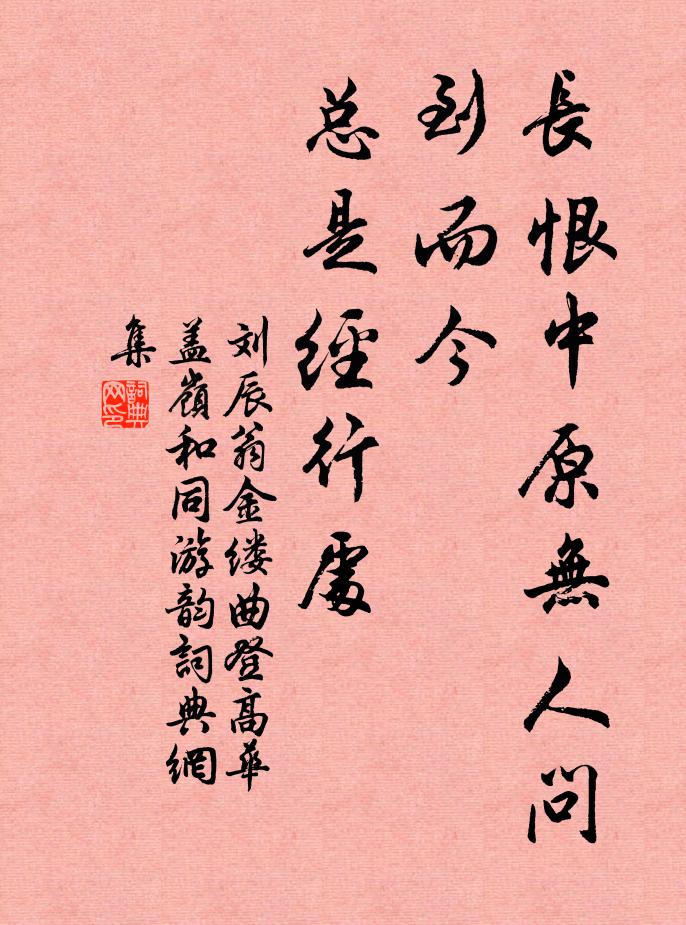 長恨中原無人問
到而今
总是經行處
刘辰翁金缕曲登高華
盖嶺和同游韵詞典網
集
詞典
网印